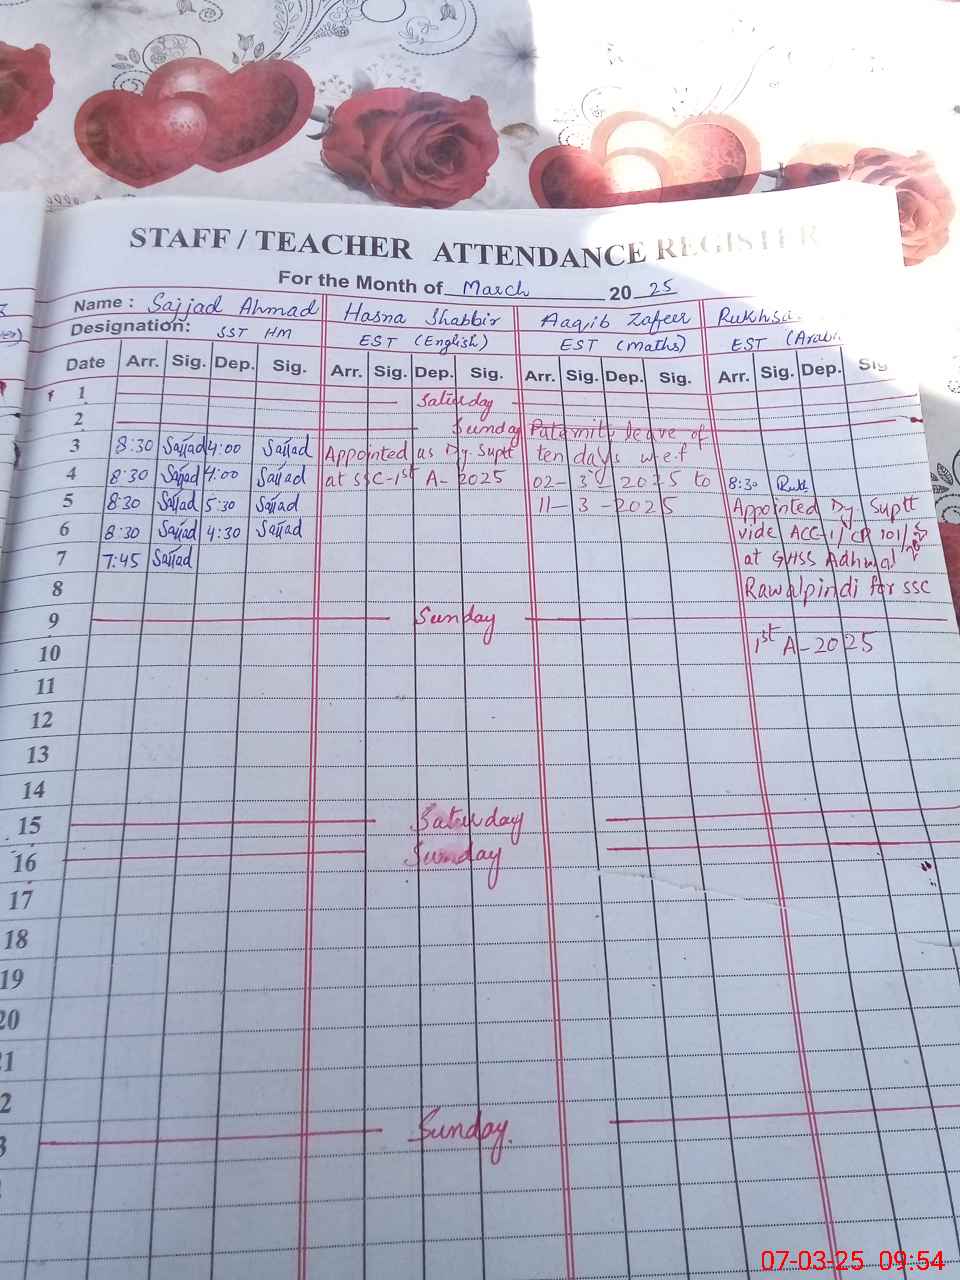 STAFF / TEACHER ATTENDANCE REGISTER
For the Month of March 2025
Name : Sajjad Ahmad Hasna Shabbir Aaqib Zafeer
Designation: SST HM EST (English) EST (maths) EST
Date Arr. Sig. Dep. Sig. Arr. Sig. Dep. Sig. Arr. Sig. Dep. Sig. Arr. Sig. Dep. Sig
1 Saturday
2 Sunday Paternity leave of
3 8:30 Sajjad 4:00 Sajjad Appointed as Dy. Suptt ten days w.e.f
4 8:30 Sajjad 4:00 Sajjad at SSC-1st A-2025 02-3-2025 to 8:30 Rukh
5 8:30 Sajjad 5:30 Sajjad 11-3-2025 Appointed Dy. Suptt
6 8:30 Sajjad 4:30 Sajjad vide ACC-1/CR 101/
7 7:45 Sajjad at GHSS Adhwal
8 Rawalpindi for SSC
9 Sunday
10 1st A-2025
11
12
13
14
15 Saturday
16 Sunday
17
18
19
20
Sunday.
07-03-25 09:54